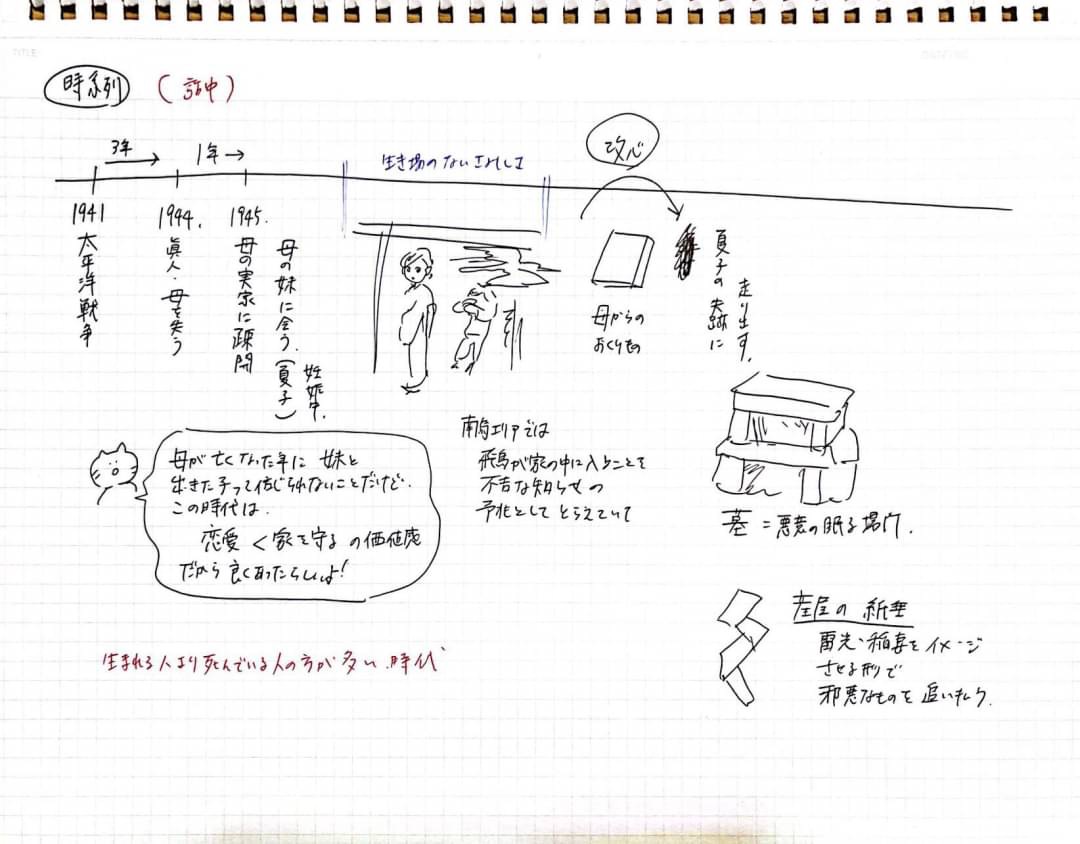 TITLE
DATE / NO.
時系列 (話中)
3年
1年→
1941
太平洋戦争
1944.
眞人・母を失う
1945.
母の実家に疎開
母の妹に会う。(夏子)
妊娠中。
生き場のない
攻心
母からの
おくりもの
夏子の失跡に
走り出す。
母が亡くなった年に 妹と
出きた子って信じられないことだけど.
この時代は.
恋愛 < 家を守る の価値感
だから 良くあったらしいよ!
南島エリアでは
飛鳥が家の中に入ることを
不吉な知らせの
予兆として とらえていて
墓 = 悪意の眠る場所.
産屋の 紙垂
雷光・稲妻をイメージ
させる形で
邪悪なものを 追いはらう.
生まれる人より死んでいる人の方が多い時代